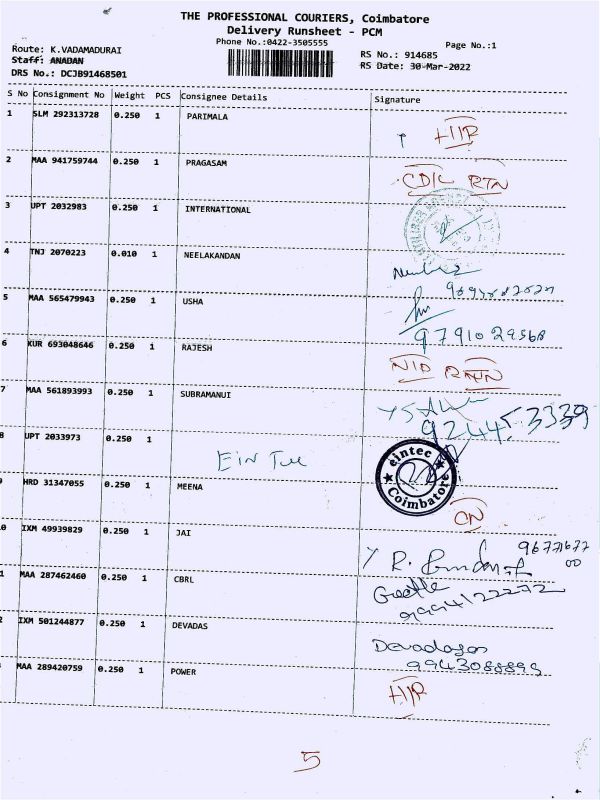 THE PROFESSIONAL COURIERS, Coimbatore
Delivery Runsheet - PCM
Phone No.:0422-3505555
Page No.:1
Route: K.VADAMADURAI
RS No.: 914685
Staff: ANADAN
RS Date: 30-Mar-2022
DRS No.: DCJB91468501
S No Consignment No Weight PCS Consignee Details Signature
1 SLM 292313728 0.250 1 PARIMALA
2 MAA 941759744 0.250 1 PRAGASAM
RTN
3 UPT 2032983 0.250 1 INTERNATIONAL
4 TNJ 2070223 0.010 1 NEELAKANDAN
5 MAA 565479943 0.250 1 USHA
6 KUR 693048646 0.250 1 RAJESH
7 MAA 561893993 0.250 1 SUBRAMANUI
8 UPT 2033973 0.250 1
eintec
Coimbatore
9 HRD 31347055 0.250 1 MEENA
CN
0 IXM 49939829 0.250 1 JAI
1 MAA 287462460 0.250 1 CBRL
2 IXM 501244877 0.250 1 DEVADAS
Devadasan
MAA 289420759 0.250 1 POWER
5